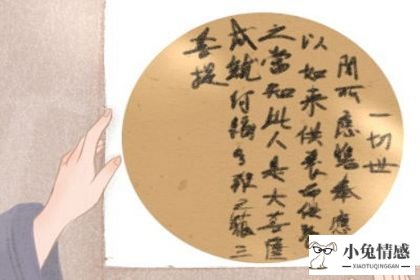 一切世
間所應瞻奉應
以如来供養而供養
之當知此人是大菩薩
成就阿耨多羅三藐三
菩提
小兔情感
XIAOTUQINGGAN